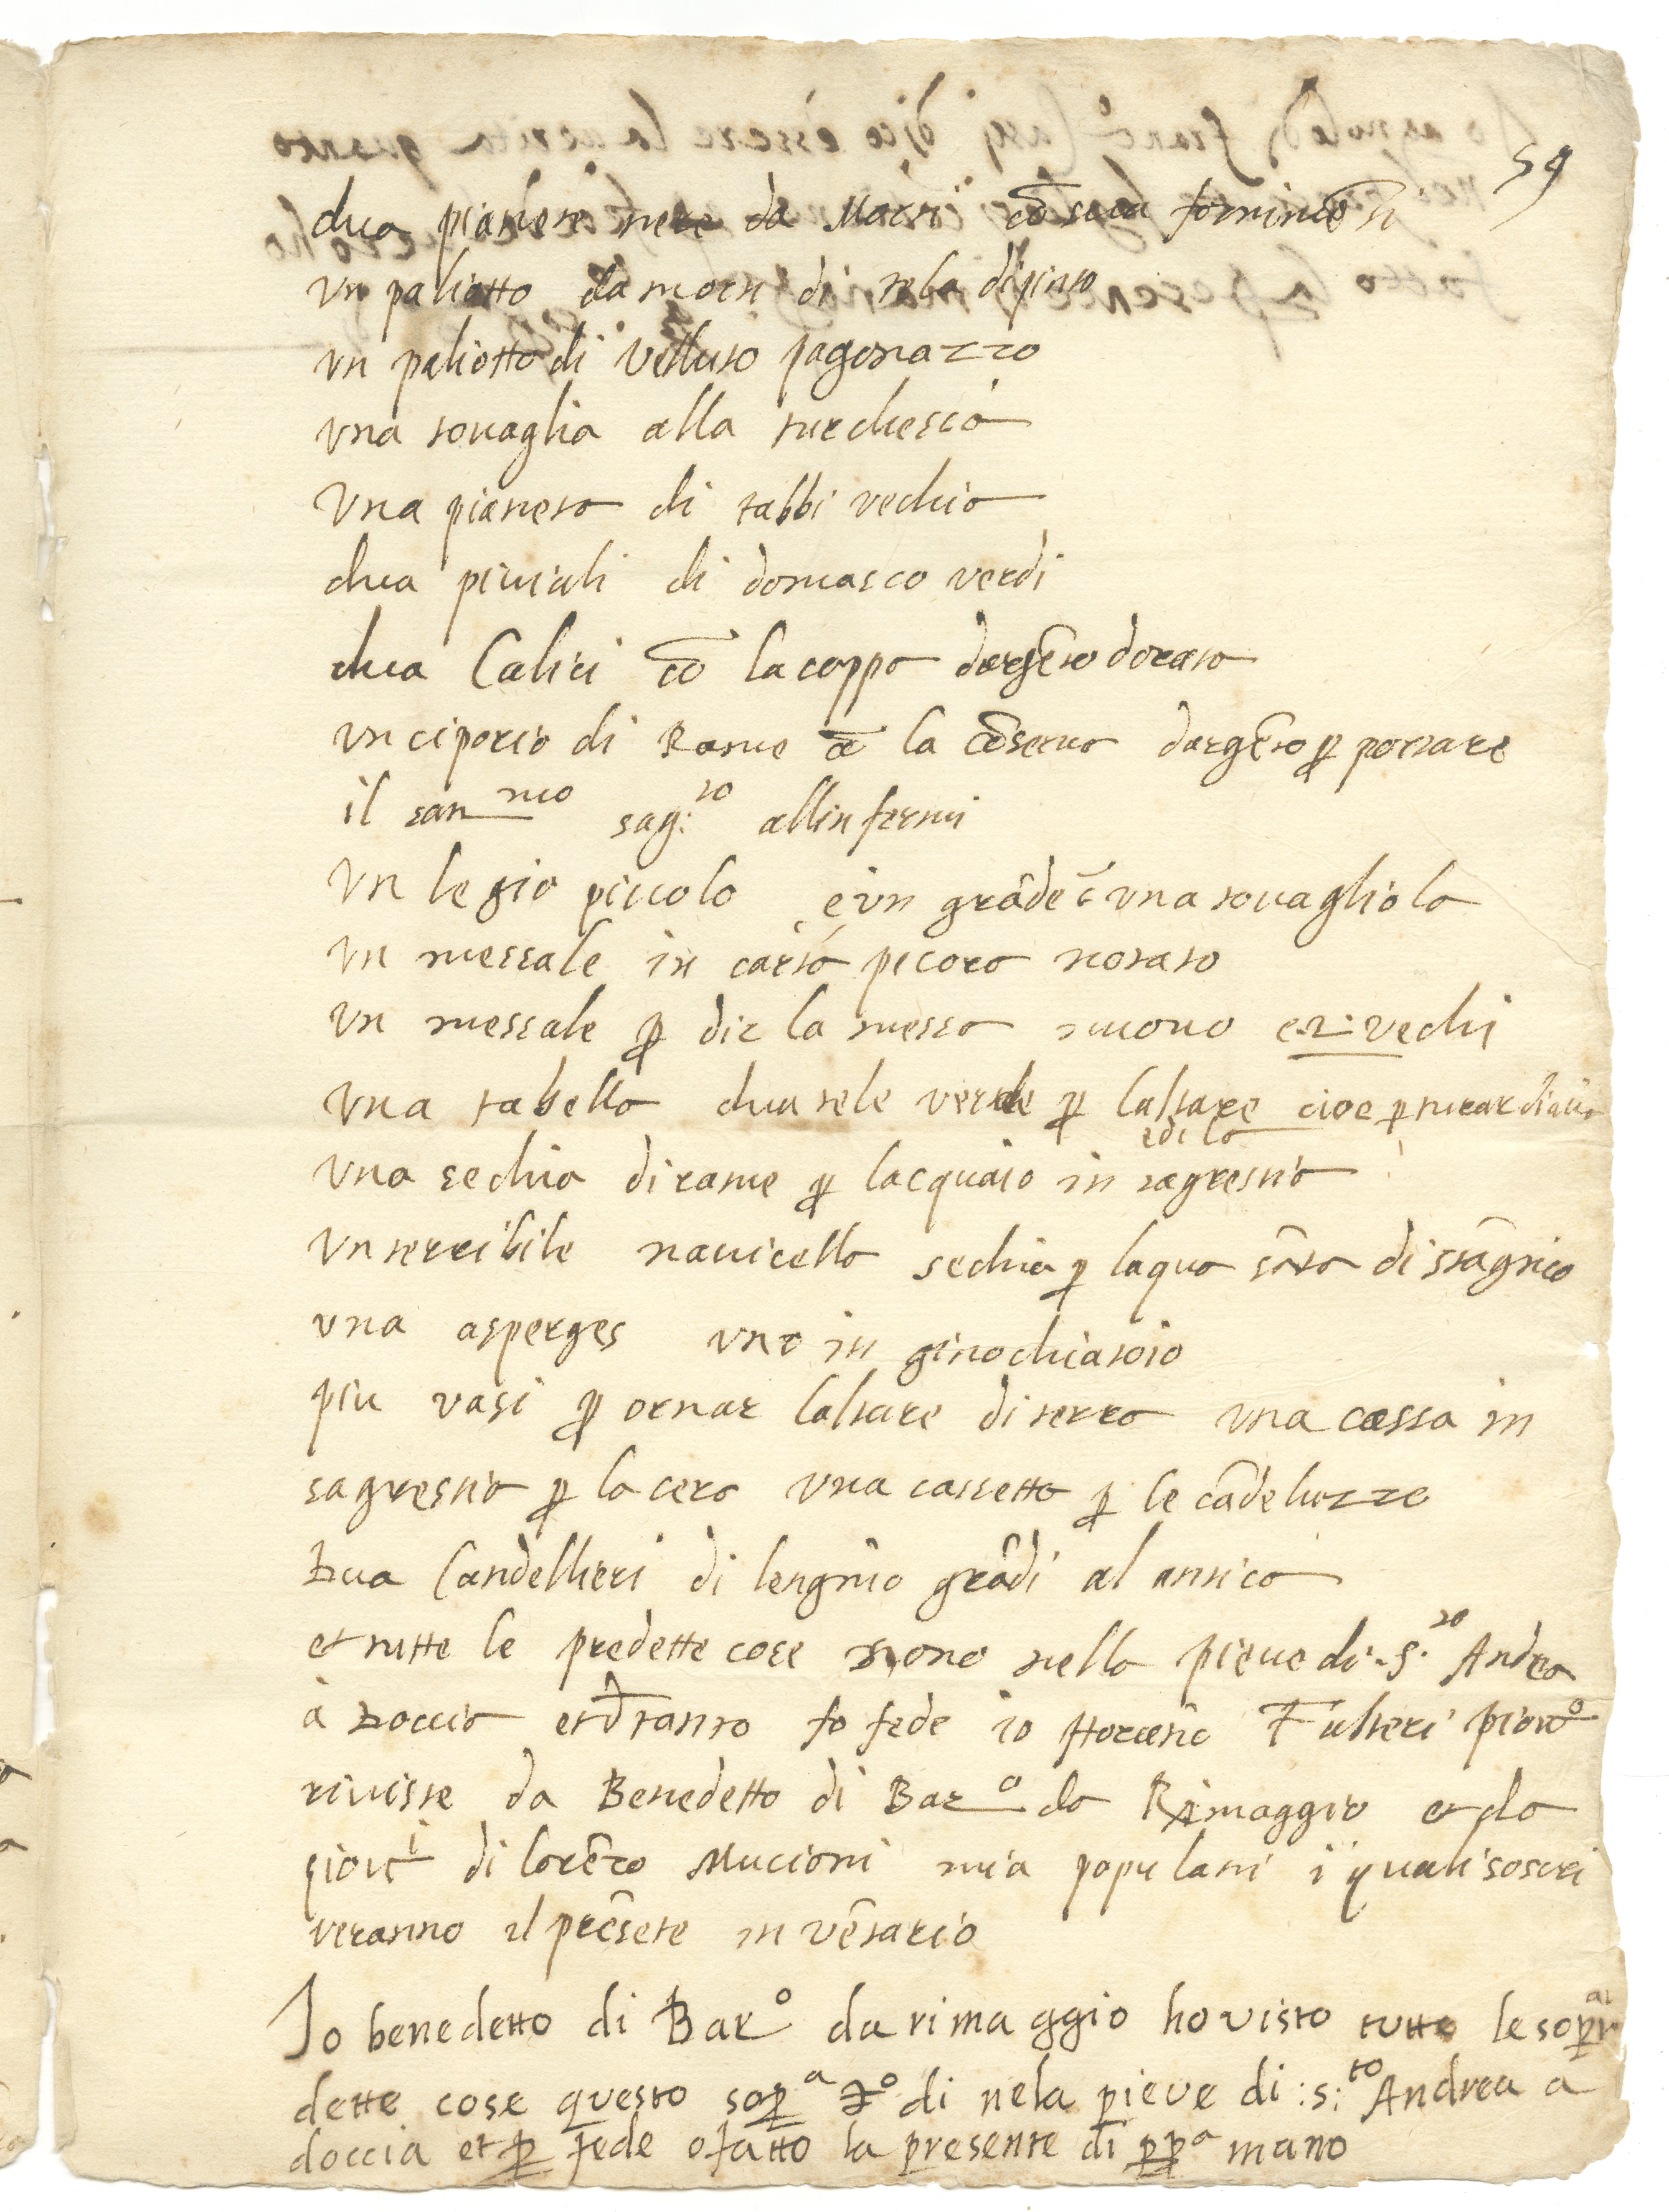 59
dua pianete nere da Morti cō suoi fornimēti
Vn paliotto da morti di tela dipinto
vn paliotto di Velluto pagonazzo
vna touaglia alla turchesca
Vna pianeta di tabbi vechia
dua piuiali di domasco verdi
dua Calici cō la coppa dargēto dorato
vn ciporio di Rame cō la cōserua dargēto p portare
il san.mo sag:to allinfermi
Vn legio piccolo e vn grāde c̄ vna touagliola
Vn messale in carta pecora notato
vn messale p dir la messa nuouo e 2 vechi
Vna tabella dua tele verde p laltare cioe p turar
edila
Vna sechia di rame p lacquaio in sagrestia
Vn terribile nauicella sechia p laqua sāta di stāgnio
vna asperges vno in ginochiatoio
piu vasi p ornar laltare di terra vna cassa in
sagrestia p la cera Vna cassetta p le cādeluzze
Dua Candellieri di lengnio grādi al antica
et tutte le predette cose sono nella pieue di .S.to Andrea
à Doccia et tanto fo fede io Fulteri piovo
riuiste da Benedetto di Baro da Rimaggio et da
di Lorēzo Mucioni mia populani i quali soscri
veranno il presēte in vētario
Io benedetto di Baro da rimaggio ho visto tutte le sopra
dette cose questo sopa di nela pieve di :s:to Andrea a
doccia et p fede o fatto la presente di ppa mano